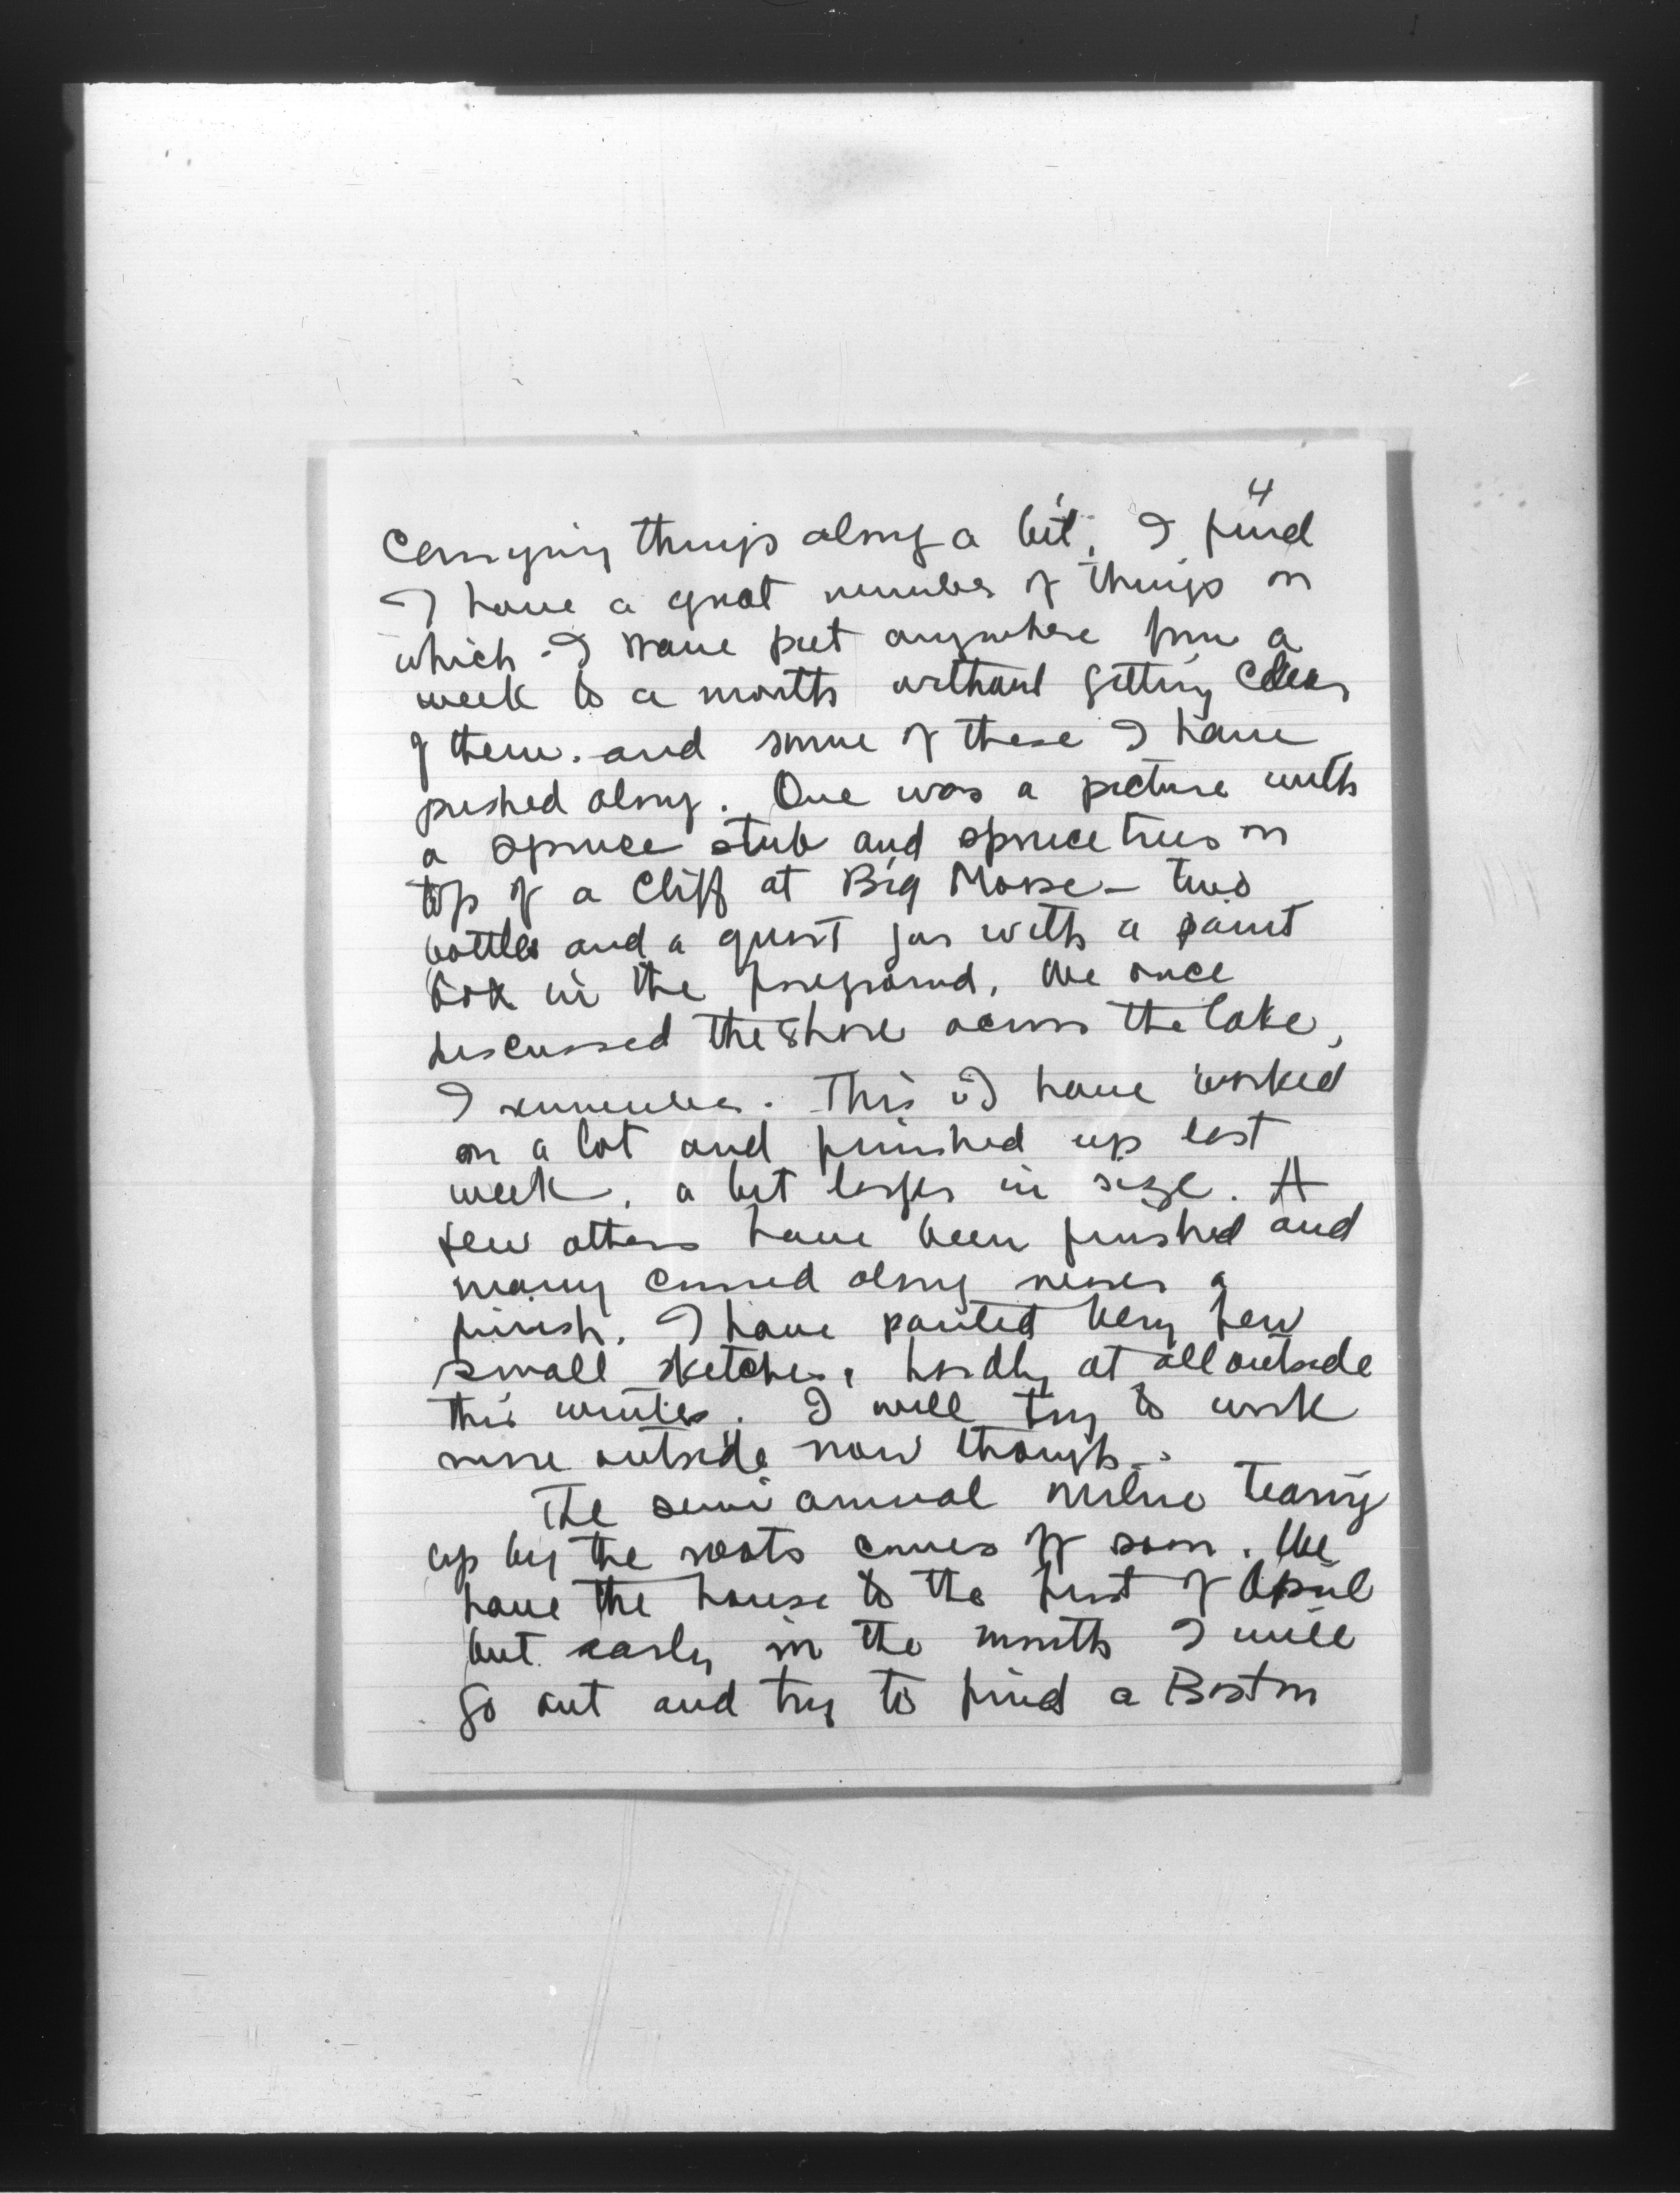 4
carrying things along a bit. I find
I have a great number of things on
which I have put anywhere from a
week to a month without getting clear
of them. and some of these I have
pushed along. One was a picture with
a spruce stub and spruce trees on
top of a cliff at Big Moose – two
bottles and a quart jar with a paint
box in the foreground. We once
discussed the shore across the lake,
I remember. This I have worked
on a lot and finished up last
week, a bit larger in size. A
few others have been finished and
many carried along nearer a
finish. I have painted very few
small sketches, hardly at all outside
this winter. I will try to work
more outside now though.
The semi annual Milne tearing
up by the roots comes off soon. We
have the house to the first of April
but early in the month I will
go out and try to find a Boston